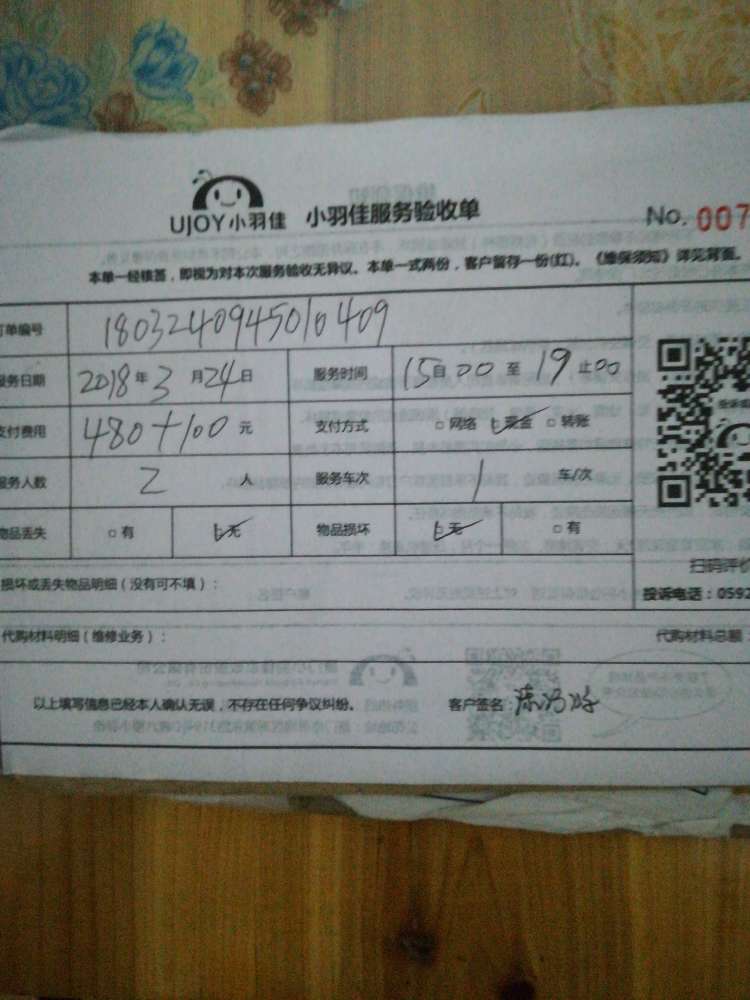 UJOY小羽佳 小羽佳服务验收单 No. 007
本单一经核签，即视为对本次服务验收无异议。本单一式两份，客户暂存一份(红)。《维保须知》详见背面。
订单编号 1803240945010409
服务日期 2018年3月24日 服务时间 15自00至19止00
支付费用 480+100元 支付方式 □网络 ☑现金 □转账
服务人数 2人 服务车次 1车/次
物品丢失 □有 ☑无 物品损坏 ☑无 □有
扫码评价
损坏或丢失物品明细（没有可不填）： 投诉电话：0592
代购材料明细（维修业务）： 代购材料总额：
以上填写信息已经本人确认无误，不存在任何争议纠纷。 客户签名：